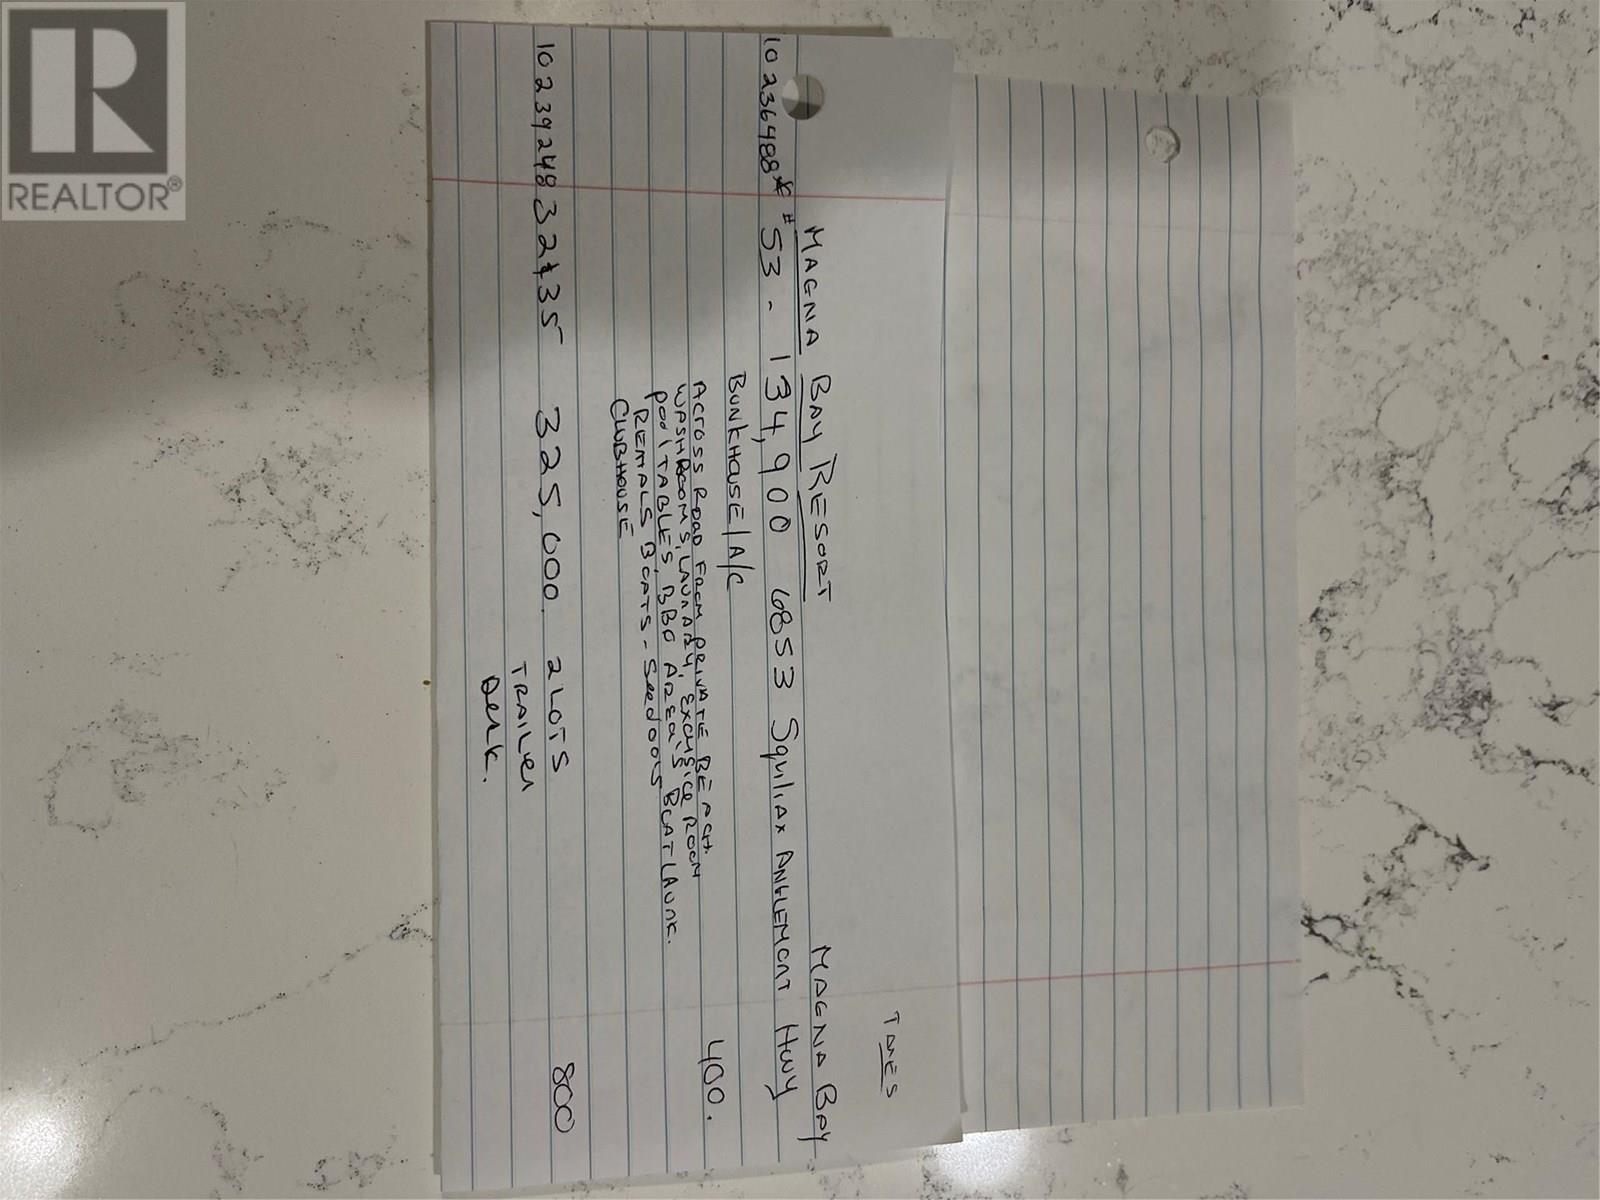 REALTOR®
TAXES
MAGNA BAY RESORT MAGNA BAY
10236488* #53 - 134,900 6853 Squiliax ANGLEMONT Hwy
BUNKHOUSE/A/C 400.
ACROSS ROAD FROM PRIVATE BEACH.
WASHROOMS, LAUNDRY, EXCERSICE ROOM
POOL TABLES, BBQ AREA'S BOAT LAUNK.
RENTALS BOATS - Seedoos
CLUBHOUSE
10239248 32+35 325,000. 2 LOTS 800
TRAILER
Deck.